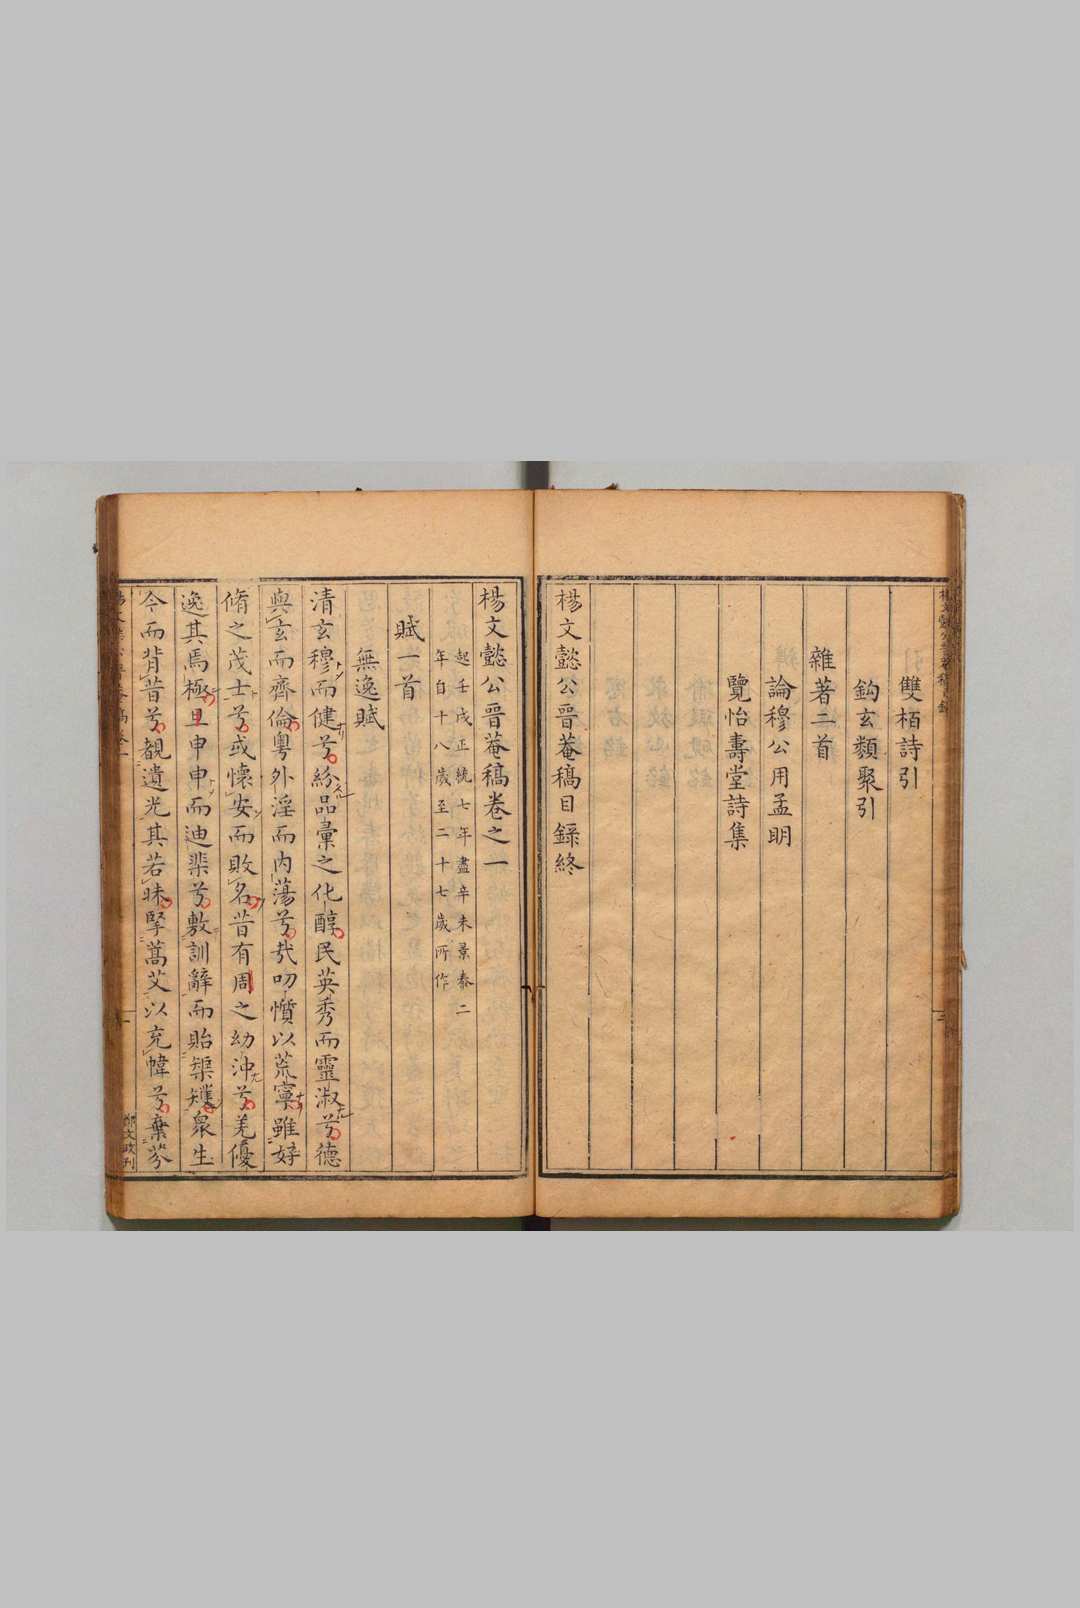 雙栢詩引
鈎玄纇聚引
雜著二首
論穆公用孟明
覽怡壽堂詩集
楊文懿公晋菴稿目錄終
楊文懿公晋菴稿卷之一
起壬戌正統七年盡辛未景泰二
年自十八歲至二十七歲所作
賦一首
無逸賦
清玄穆而健兮紛品彙之化醇民英秀而靈淑兮德
與玄而齊倫粵外淫而内蕩兮戕叨懫以荒寧雖好
脩之茂士兮或懷安而敗名昔有周之幼沖兮羌優
逸其焉極旦申申而迪棐兮敷訓辭而貽榘矱衆生
今而背昔兮覩遺光其若昧掔蒿艾以充幃兮棄芬